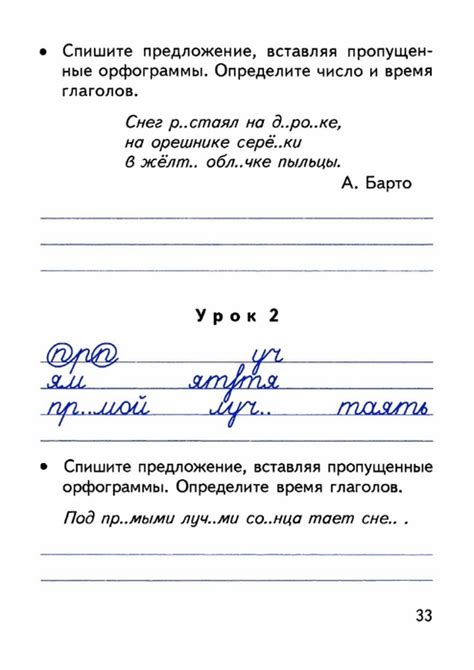 • Спишите предложение, вставляя пропущен-
ные орфограммы. Определите число и время
глаголов.
Снег р..стаял на д..ро..ке,
на орешнике серё..ки
в жёлт.. обл..чке пыльцы.
А. Барто
Урок 2
прп уч
ям ят/тя
пр..мой луч.. таять
• Спишите предложение, вставляя пропущенные
орфограммы. Определите время глаголов.
Под пр..мыми луч..ми со..нца тает сне.. .
33